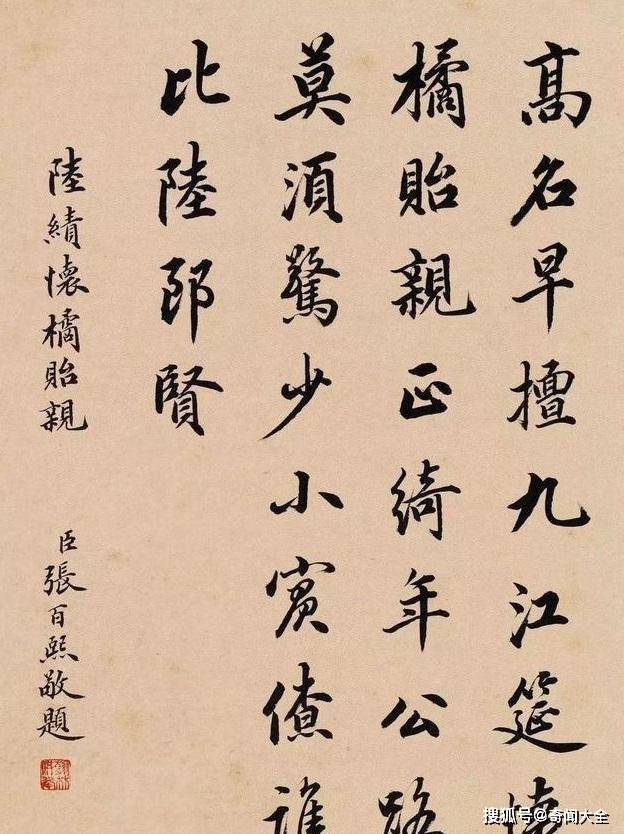 高名早擅九江筵
橘貽親正綺年公路
莫須驚少小賓僚誰
比陸郎賢
陸績懷橘貽親
臣張百熙敬題
搜狐号@奇闻大全